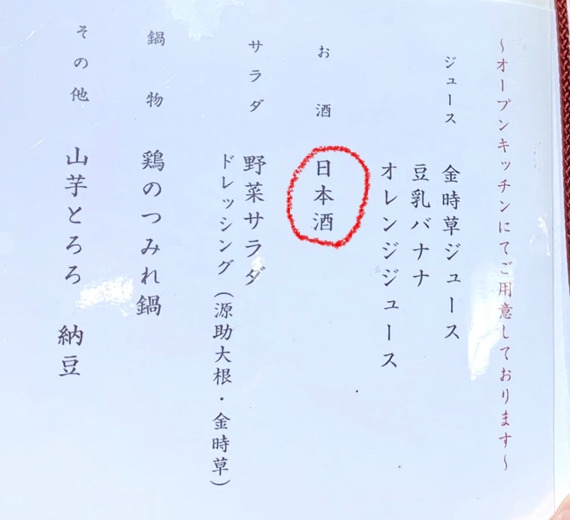 ～オープンキッチンにてご用意しております～
ジュース　金時草ジュース
豆乳バナナ
オレンジジュース
お酒　日本酒
サラダ　野菜サラダ
ドレッシング（源助大根・金時草）
鍋物　鶏のつみれ鍋
その他　山芋とろろ　納豆